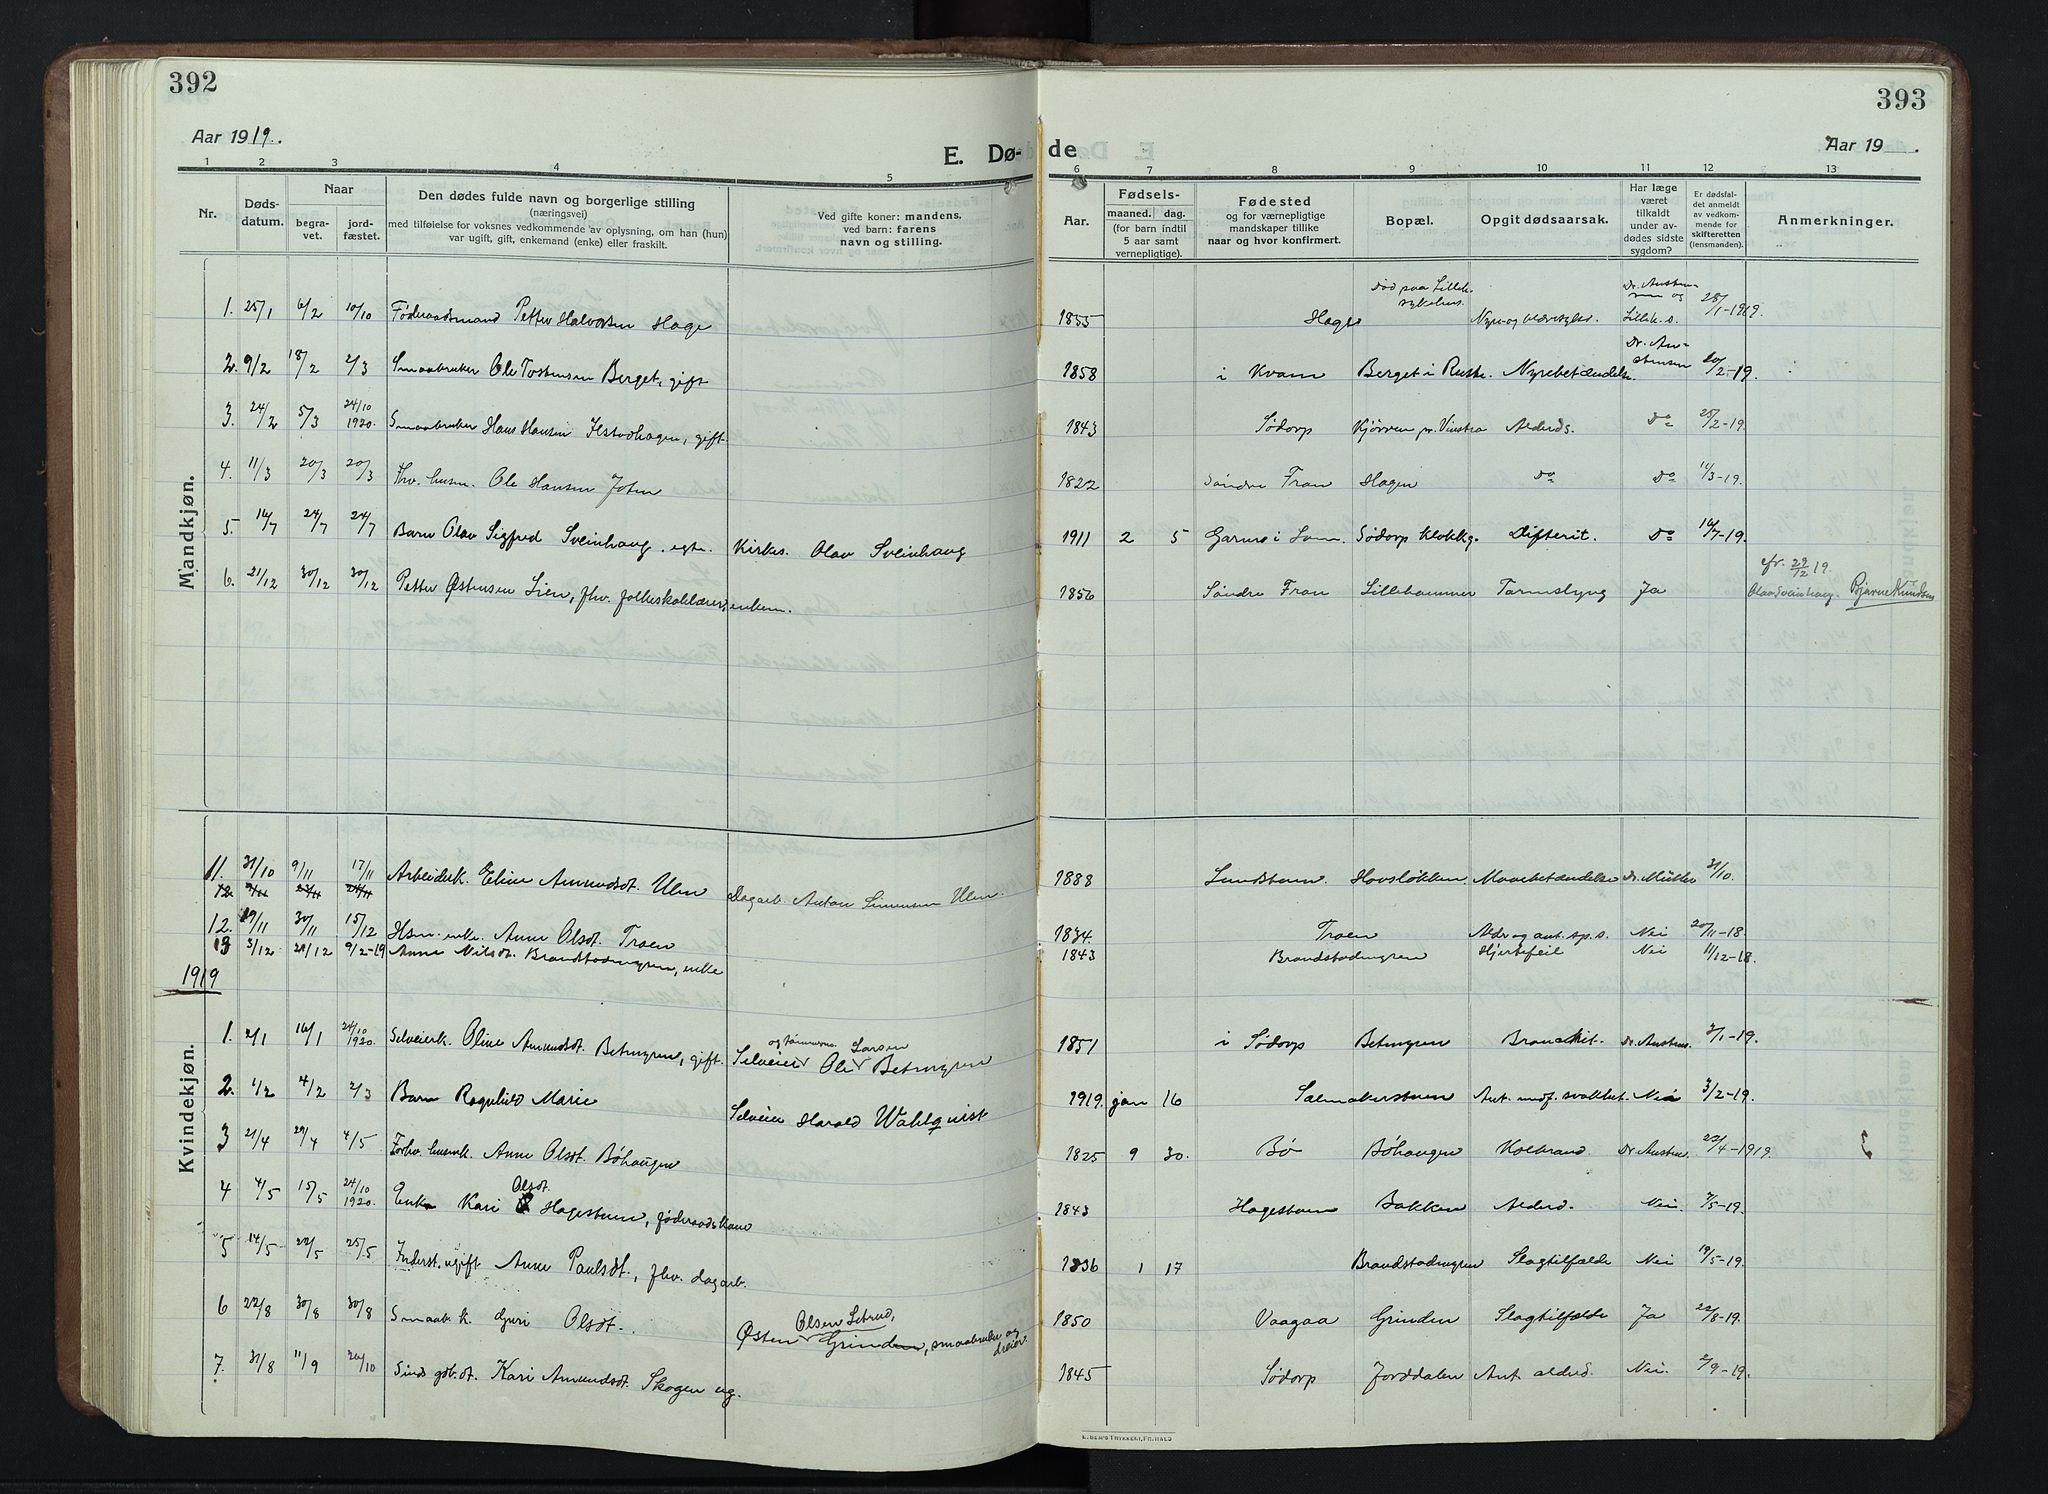 392
Aar 1919.
E. Dø-
1 2 3 4 5
Nr.
Døds-
datum.
Naar
begra-
vet.
jord-
fæstet.
Den dødes fulde navn og borgerlige stilling
(næringsvei)
med tilføielse for voksnes vedkommende av oplysning, om han (hun)
var ugift, gift, enkemand (enke) eller fraskilt.
Ved gifte koner: mandens,
ved barn: farens
navn og stilling.
Mandkjøn.
1. 25/1 6/2 10/10 Føderaadsmand Petter Halvorsen Hage
2. 9/2 18/2 2/3 Smaabruker Ole Tostensen Berget, gift
3. 24/2 5/3 24/10 1920. Smaabruker Hans Hansen gift
4. 11/3 20/3 20/3 Fhv. husm. Ole Hansen
5. 16/7 24/7 24/7 Barn Olav Sigfred Sveinhaug, egte. Kirkes. Olav Sveinhaug
6. 21/12 30/12 30/12 Petter Østensen Lien, fhv. folkeskolelærer, enkem.
11. 31/10 9/11 17/11 Arbeiderk. Eline Amundsdt. Ulen Dagarb. Anton Simensen Ulen.
12. 19/11 30/11 15/12 Hsm. enke. Anne Olsdt. Troen
13 3/12 21/12 9/2-19 Anne Nilsdt. Brandstadengen, enke
1919
Kvindekjøn.
1. 2/1 16/1 24/10 1920. Selveierk. Oline Amundsdt. Betengren, gift. Selveier Ole Larsen Betengren
2. 1/2 4/2 2/3 Barn Ragnhild Marie Selveier Harald Wahlqvist
3 21/4 29/4 4/5 Forhv. husmk. Anne Olsdt. Bøhaugen
4 4/5 15/5 24/10 1920. Enke Kari Olsdt. Hagestuen, føderaadskone
5 14/5 22/5 25/5 Inderst. ugift Anne Paulsdt., fhv. dagarb.
6 22/8 30/8 30/8 Smaabr.k. Guri Olsdt. Østen Olsen Grinden, smaabruker og dreier.
7. 31/8 11/9 26/10 Sinds gdb.dt. Kari Amundsdt. Skogen ug.
393
de
Aar 19 .
6 7 8 9 10 11 12 13
Aar.
Fødsels-
maaned. dag.
(for barn indtil
5 aar samt
vernepligtige).
Fødested
og for værnepligtige
mandskaper tillike
naar og hvor konfirmert.
Bopæl.
Opgit dødsaarsak.
Har læge
været
tilkaldt
under av-
dødes sidste
sygdom?
Er dødsfal-
det anmeldt
av vedkom-
mende for
skifteretten
(lensmanden).
Anmerkninger.
1855 Hage Død paa Lilleh. sykehus. Nyre- og blæresykd. Lilleh. s. 28/1-1919.
1858 i Kvam Berget i Ruste. Nyrebetændelse. Dr. Au-stensen 20/2-19.
1843 Sødorp Kjørrem pr. Vinstra Alderds. Do 25/2-19.
1822 Søndre Fron Hagen Do Do 11/3-19.
1911 2 5 Garmo i Lom. Sødorp klokkg. Difterit. Do 16/7-19.
1856 Søndre Fron Lillehammer Tarmslyng Ja cfr. 29/12 19. Olav Sveinhaug. Bjarne Knudsen
1888 Sundstuen. Mavebetændelse Dr. Müller 31/10.
1834. Troen Aldr og ant. sp. s. Nei 20/11-18
1843 Brandstadengen Hjertefeil Nei 11/12-18.
1851 i Sødorp Betengren Bronchit. Dr. Austens. 3/1-19.
1919. jan 16 Salmakerstuen Ant. medf. svakhet. Nei 3/2-19.
1825 9 30. Bø Bøhaugen Kolbrand Dr. Austens. 22/4-1919.
1843 Hagestuen Bakken Alderd. Nei. 7/5-19.
1836 1 17 Brandstadengen Slagtilfælde Nei 19/5-19.
1850 Vaagaa Grinden Slagtilfælde Ja 22/8-19.
1845 Sødorp Jorddalen Ant. alderd. Nei. 2/9-19.
E. SEM'S TRYKKERI, FR.HALD